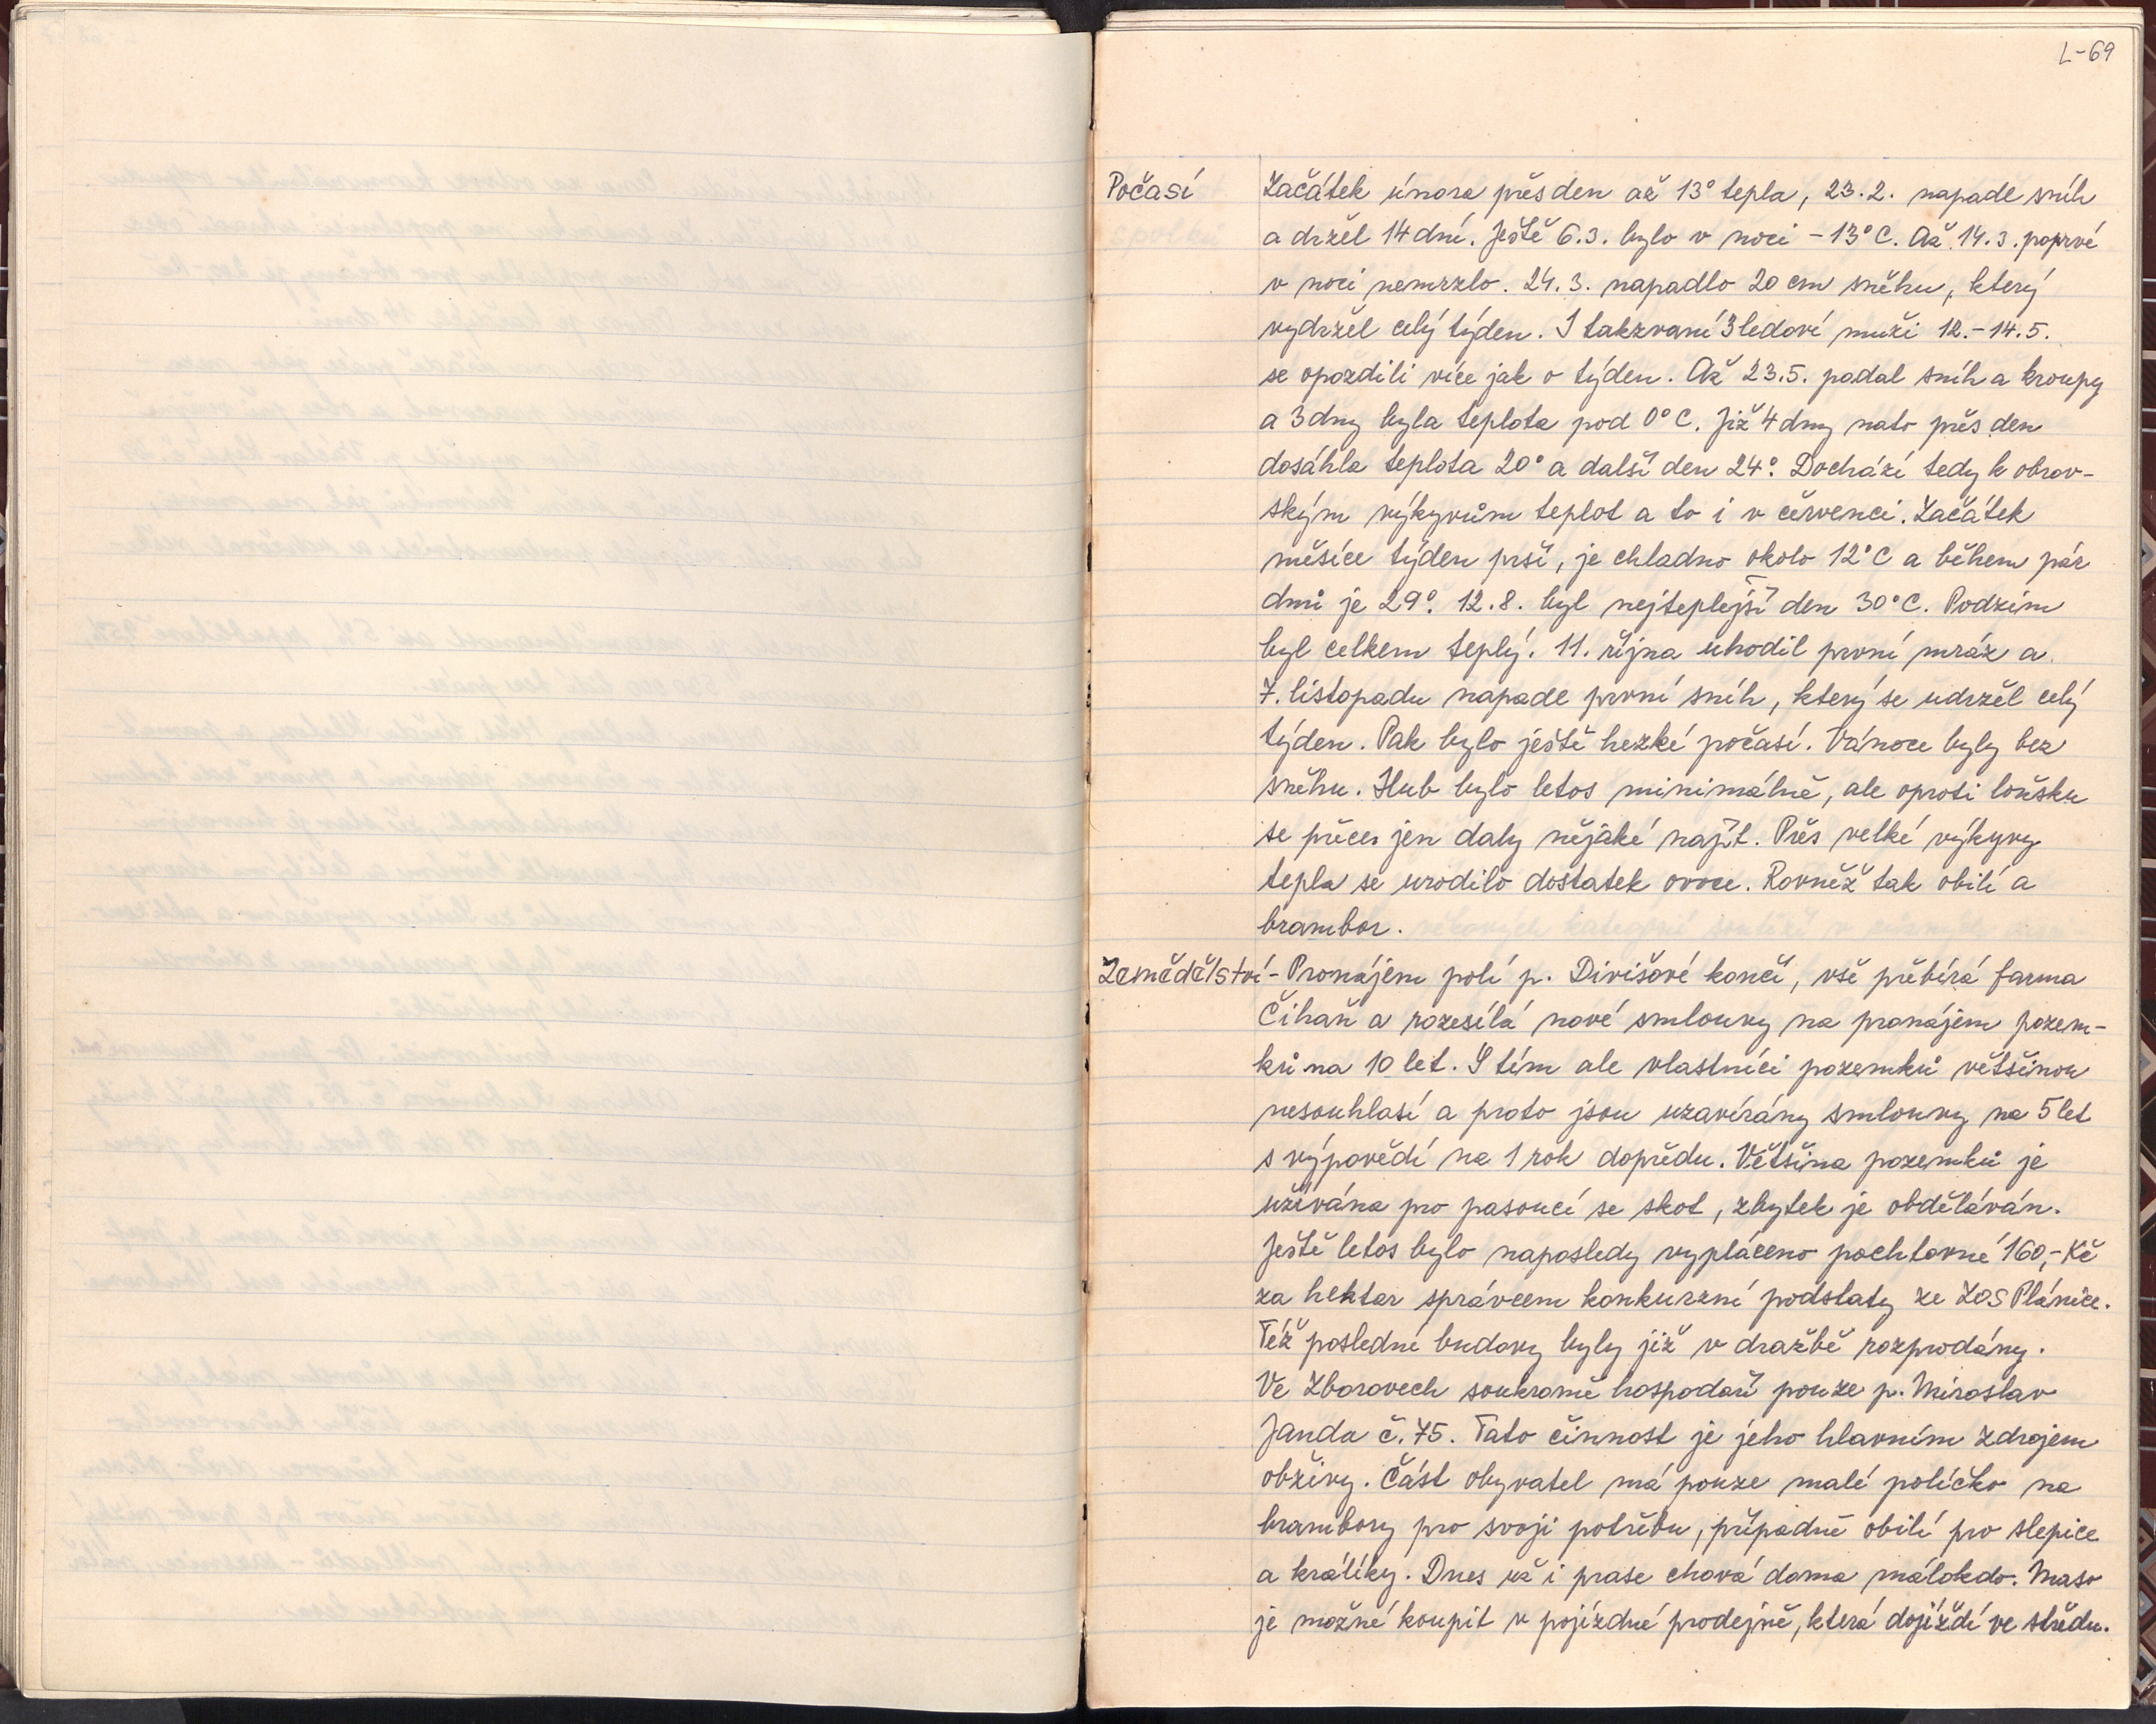 L-69
Počasí Začátek února přes den až 13° tepla, 23.2. napadl sníh
a držel 14 dní. Ještě 6.3. bylo v noci -13°C. Až 14.3. poprvé
v noci nemrzlo. 24.3. napadlo 20 cm sněhu, který
vydržel celý týden. I takzvaní 3 ledoví muži 12.-14.5.
se opozdili více jak o týden. Až 23.5. padal sníh a kroupy
a 3 dny byla teplota pod 0°C. Již 4 dny nato přes den
dosáhla teplota 20° a další den 24°. Dochází tedy k obrov-
ským výkyvům teplot a to i v červenci. Začátek
měsíce týden prší, je chladno okolo 12°C a během pár
dnů je 29°. 12.8. byl nejteplejší den 30°C. Podzim
byl celkem teplý. 11. října uhodil první mráz a
7. listopadu napadl první sníh, který se udržel celý
týden. Pak bylo ještě hezké počasí. Vánoce byly bez
sněhu. Hub bylo letos minimálně, ale oproti loňsku
se přeces jen daly nějaké najít. Přes velké výkyvy
tepla se urodilo dostatek ovoce. Rovněž tak obilí a
brambor.
Zemědělství - Pronájem polí p. Divišové končí, vše přebírá farma
Číhaň a rozesílá nové smlouvy na pronájem pozem-
ků na 10 let. S tím ale vlastníci pozemků většinou
nesouhlasí a proto jsou uzavírány smlouvy na 5 let
s výpovědí na 1 rok dopředu. Většina pozemků je
užívána pro pasoucí se skot, zbytek je obděláván.
Ještě letos bylo naposledy vypláceno pachtovné 160,- Kč
za hektar správcem konkurzní podstaty ze ZOS Plánice.
Též poslední budovy byly již v dražbě rozprodány.
Ve Zborovech soukromě hospodaří pouze p. Miroslav
Janda č. 75. Tato činnost je jeho hlavním zdrojem
obživy. Část obyvatel má pouze malé políčko na
brambory pro svoji potřebu, případně obilí pro slepice
a králíky. Dnes už i prase chová doma málokdo. Maso
je možné koupit v pojízdné prodejně, která dojíždí ve středu.